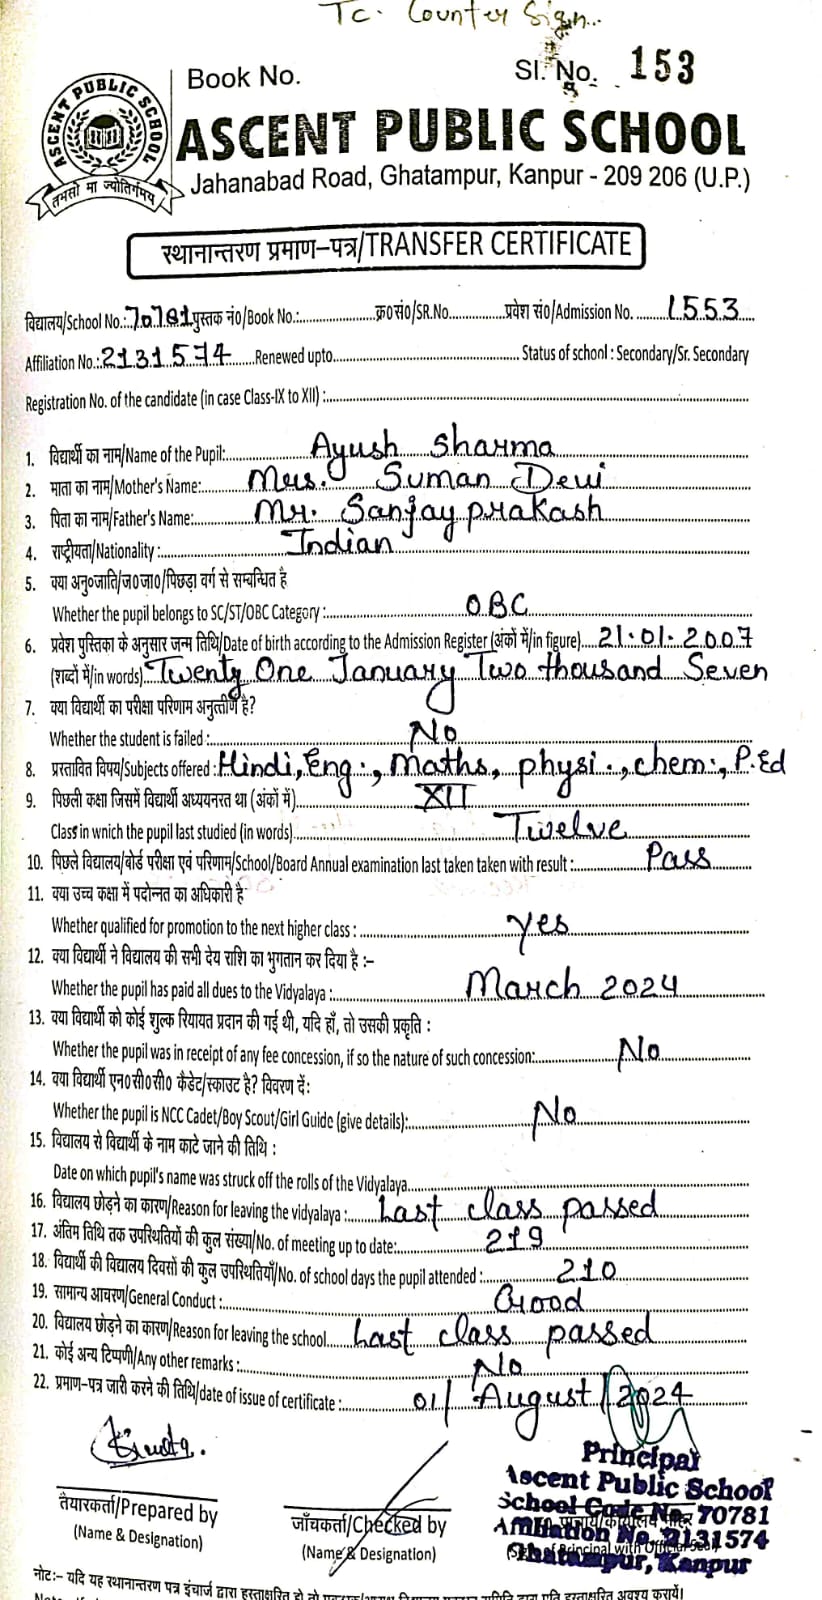 Tc. Counter Sign..
Book No.
Sl. No. 153
ASCENT PUBLIC SCHOOL
तमसो मा ज्योतिर्गमय
ASCENT PUBLIC SCHOOL
Jahanabad Road, Ghatampur, Kanpur - 209 206 (U.P.)
स्थानान्तरण प्रमाण-पत्र/TRANSFER CERTIFICATE
विद्यालय/School No.: 70781 पुस्तक नं0/Book No.: क्र0सं0/SR.No. प्रवेश सं0/Admission No. 1553
Affiliation No.: 2131574 Renewed upto. Status of school : Secondary/Sr. Secondary
Registration No. of the candidate (in case Class-IX to XII) :
1. विद्यार्थी का नाम/Name of the Pupil: Ayush Sharma
2. माता का नाम/Mother's Name: Mrs. Suman Devi
3. पिता का नाम/Father's Name: Mr. Sanjay prakash
4. राष्ट्रीयता/Nationality : Indian
5. क्या अनु०जाति/ज०जा०/पिछड़ा वर्ग से सम्बन्धित है
Whether the pupil belongs to SC/ST/OBC Category : OBC
6. प्रवेश पुस्तिका के अनुसार जन्म तिथि/Date of birth according to the Admission Register (अंकों में/in figure) 21.01.2007
(शब्दों में/in words) Twenty One January Two thousand Seven
7. क्या विद्यार्थी का परीक्षा परिणाम अनुत्तीर्ण है?
Whether the student is failed : No
8. प्रस्तावित विषय/Subjects offered : Hindi, Eng., Maths, physi., chem., P.Ed
9. पिछली कक्षा जिसमें विद्यार्थी अध्ययनरत था (अंकों में) XII
Class in wnich the pupil last studied (in words) Twelve
10. पिछले विद्यालय/बोर्ड परीक्षा एवं परिणाम/School/Board Annual examination last taken taken with result : Pass
11. क्या उच्च कक्षा में पदोन्नत का अधिकारी है
Whether qualified for promotion to the next higher class : yes
12. क्या विद्यार्थी ने विद्यालय की सभी देय राशि का भुगतान कर दिया है :-
Whether the pupil has paid all dues to the Vidyalaya : March 2024
13. क्या विद्यार्थी को कोई शुल्क रियायत प्रदान की गई थी, यदि हाँ, तो उसकी प्रकृति :
Whether the pupil was in receipt of any fee concession, if so the nature of such concession: No
14. क्या विद्यार्थी एन०सी०सी० कैडेट/स्काउट है? विवरण दें:
Whether the pupil is NCC Cadet/Boy Scout/Girl Guide (give details): No
15. विद्यालय से विद्यार्थी के नाम काटे जाने की तिथि :
Date on which pupil's name was struck off the rolls of the Vidyalaya
16. विद्यालय छोड़ने का कारण/Reason for leaving the vidyalaya : Last class passed
17. अंतिम तिथि तक उपस्थितियों की कुल संख्या/No. of meeting up to date: 219
18. विद्यार्थी की विद्यालय दिवसों की कुल उपस्थितियाँ/No. of school days the pupil attended : 210
19. सामान्य आचरण/General Conduct : Good
20. विद्यालय छोड़ने का कारण/Reason for leaving the school Last class passed
21. कोई अन्य टिप्पणी/Any other remarks : No
22. प्रमाण-पत्र जारी करने की तिथि/date of issue of certificate : 01/ August/2024
तैयारकर्ता/Prepared by
(Name & Designation)
जाँचकर्ता/Checked by
(Name & Designation)
Principal
Ascent Public School
School Code No. 70781
Affiliation No. 2131574
Principal with Official Seal)
Ghatampur, Kanpur
नोट:- यदि यह स्थानान्तरण पत्र इंचार्ज द्वारा हस्ताक्षरित हो तो द्वारा प्रति हस्ताक्षरित अवश्य करायें।